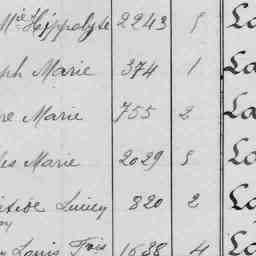 Mie Hippolyte 2243 5 La
ph Marie 374 1 La
re Marie 755 2 La
es Marie 2029 5 La
820 2 La
Louis Fois 1688 4 La